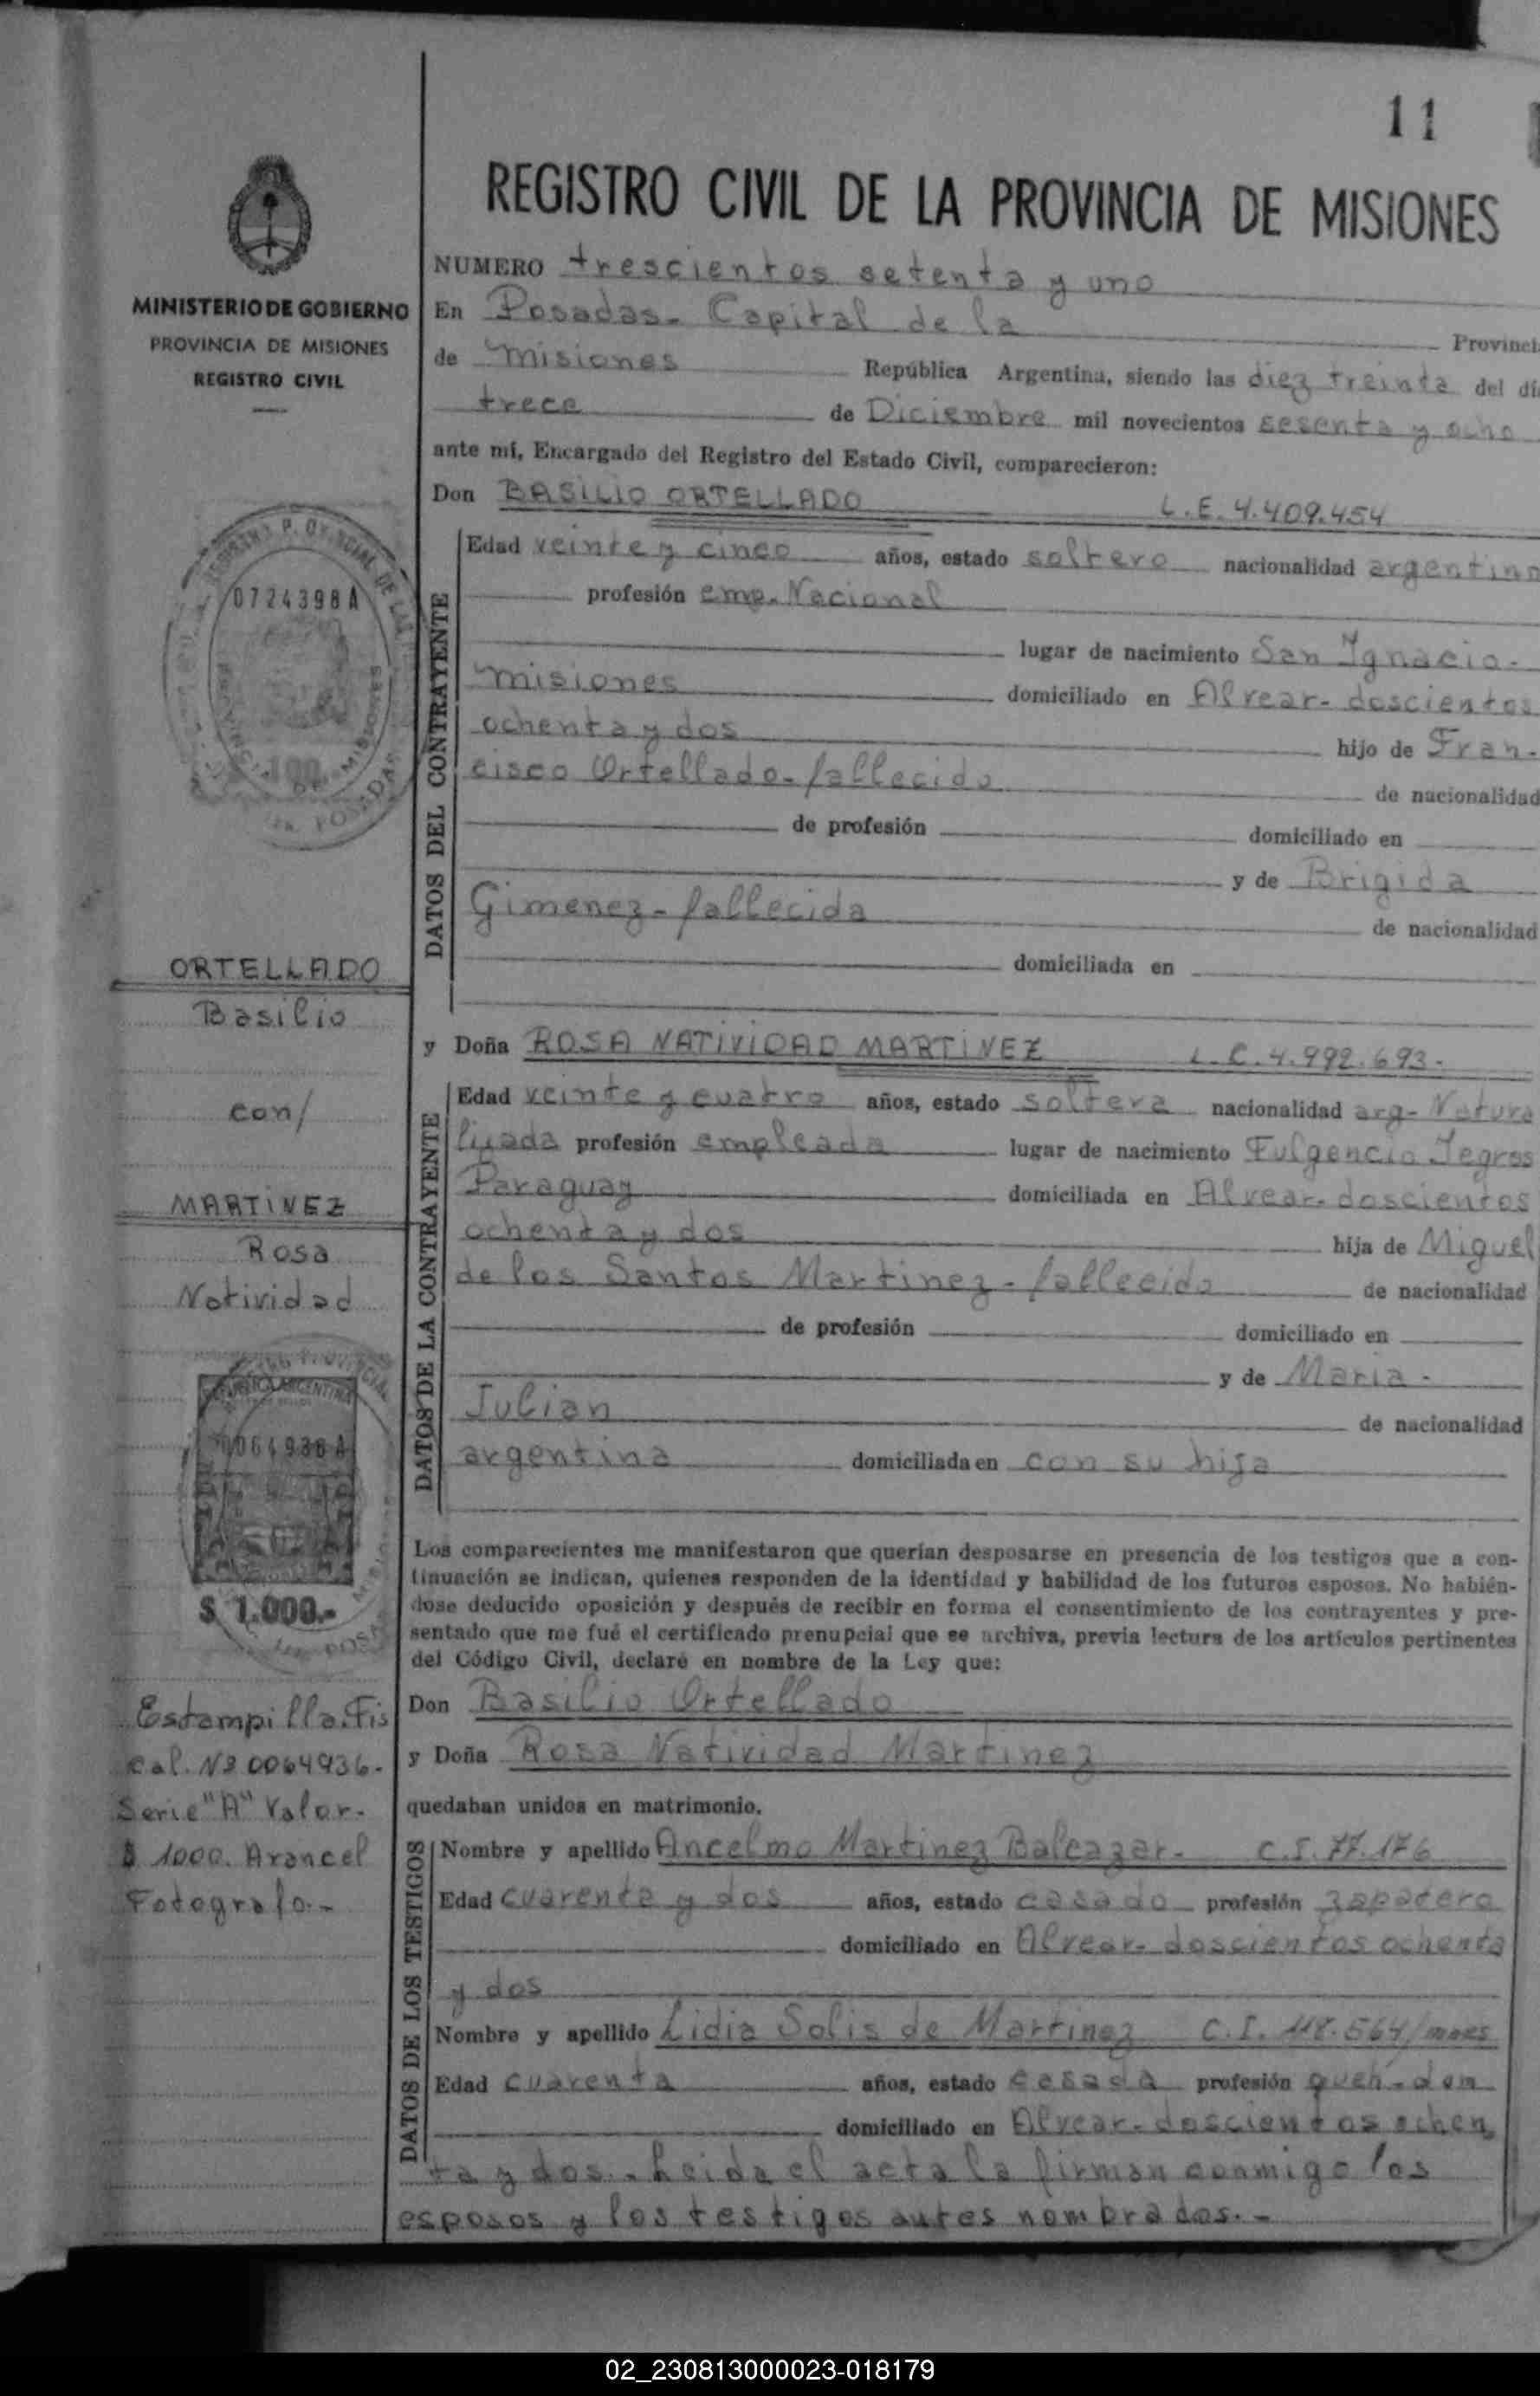 11
REGISTRO CIVIL DE LA PROVINCIA DE MISIONES
MINISTERIO DE GOBIERNO
PROVINCIA DE MISIONES
REGISTRO CIVIL
NUMERO trescientos setenta y uno
En Posadas - Capital de la Provinci
de Misiones República Argentina, siendo las diez treinta del dí
trece de Diciembre mil novecientos sesenta y ocho
ante mí, Encargado del Registro del Estado Civil, comparecieron:
Don BASILIO ORTELLADO L.E. 4.409.454
DATOS DEL CONTRAYENTE
Edad veinte y cinco años, estado soltero nacionalidad argentino
profesión emp. Nacional
lugar de nacimiento San Ignacio -
Misiones domiciliado en Alvear - doscientos
ochenta y dos hijo de Fran-
cisco Ortellado - fallecido de nacionalidad
de profesión domiciliado en
y de Brigida
Gimenez - fallecida de nacionalidad
domiciliada en
0724398 A
100
ORTELLADO
Basilio
con/
MARTINEZ
Rosa
Natividad
y Doña ROSA NATIVIDAD MARTINEZ L.C. 4.992.693.-
DATOS DE LA CONTRAYENTE
Edad veinte y cuatro años, estado soltera nacionalidad arg- Natura
lizada profesión empleada lugar de nacimiento Fulgencio Yegros
Paraguay domiciliada en Alvear - doscientos
ochenta y dos hija de Miguel
de los Santos Martinez - fallecido de nacionalidad
de profesión domiciliado en
y de Maria -
Julian de nacionalidad
argentina domiciliada en con su hija
REPUBLICA ARGENTINA
0064936 A
$ 1.000.-
Los comparecientes me manifestaron que querían desposarse en presencia de los testigos que a con-
tinuación se indican, quienes responden de la identidad y habilidad de los futuros esposos. No habién-
dose deducido oposición y después de recibir en forma el consentimiento de los contrayentes y pre-
sentado que me fué el certificado prenupcial que se archiva, previa lectura de los artículos pertinentes
del Código Civil, declaré en nombre de la Ley que:
Don Basilio Ortellado
y Doña Rosa Natividad Martinez
quedaban unidos en matrimonio.
Estampilla. Fis
cal. Nº 0064936.-
Serie "A" Valor.-
$ 1000. Arancel
Fotografo.-
DATOS DE LOS TESTIGOS
Nombre y apellido Ancelmo Martinez Balcazar - C.I. 77.176
Edad cuarenta y dos años, estado casado profesión zapatero
domiciliado en Alvear - doscientos ochenta
y dos
Nombre y apellido Lidia Solis de Martinez C.I. 118.564/mnes
Edad cuarenta años, estado casada profesión queh- dom
domiciliado en Alvear - doscientos ochen
ta y dos.- Leida el acta la firman conmigo los
esposos y los testigos antes nombrados.-
02_230813000023-018179